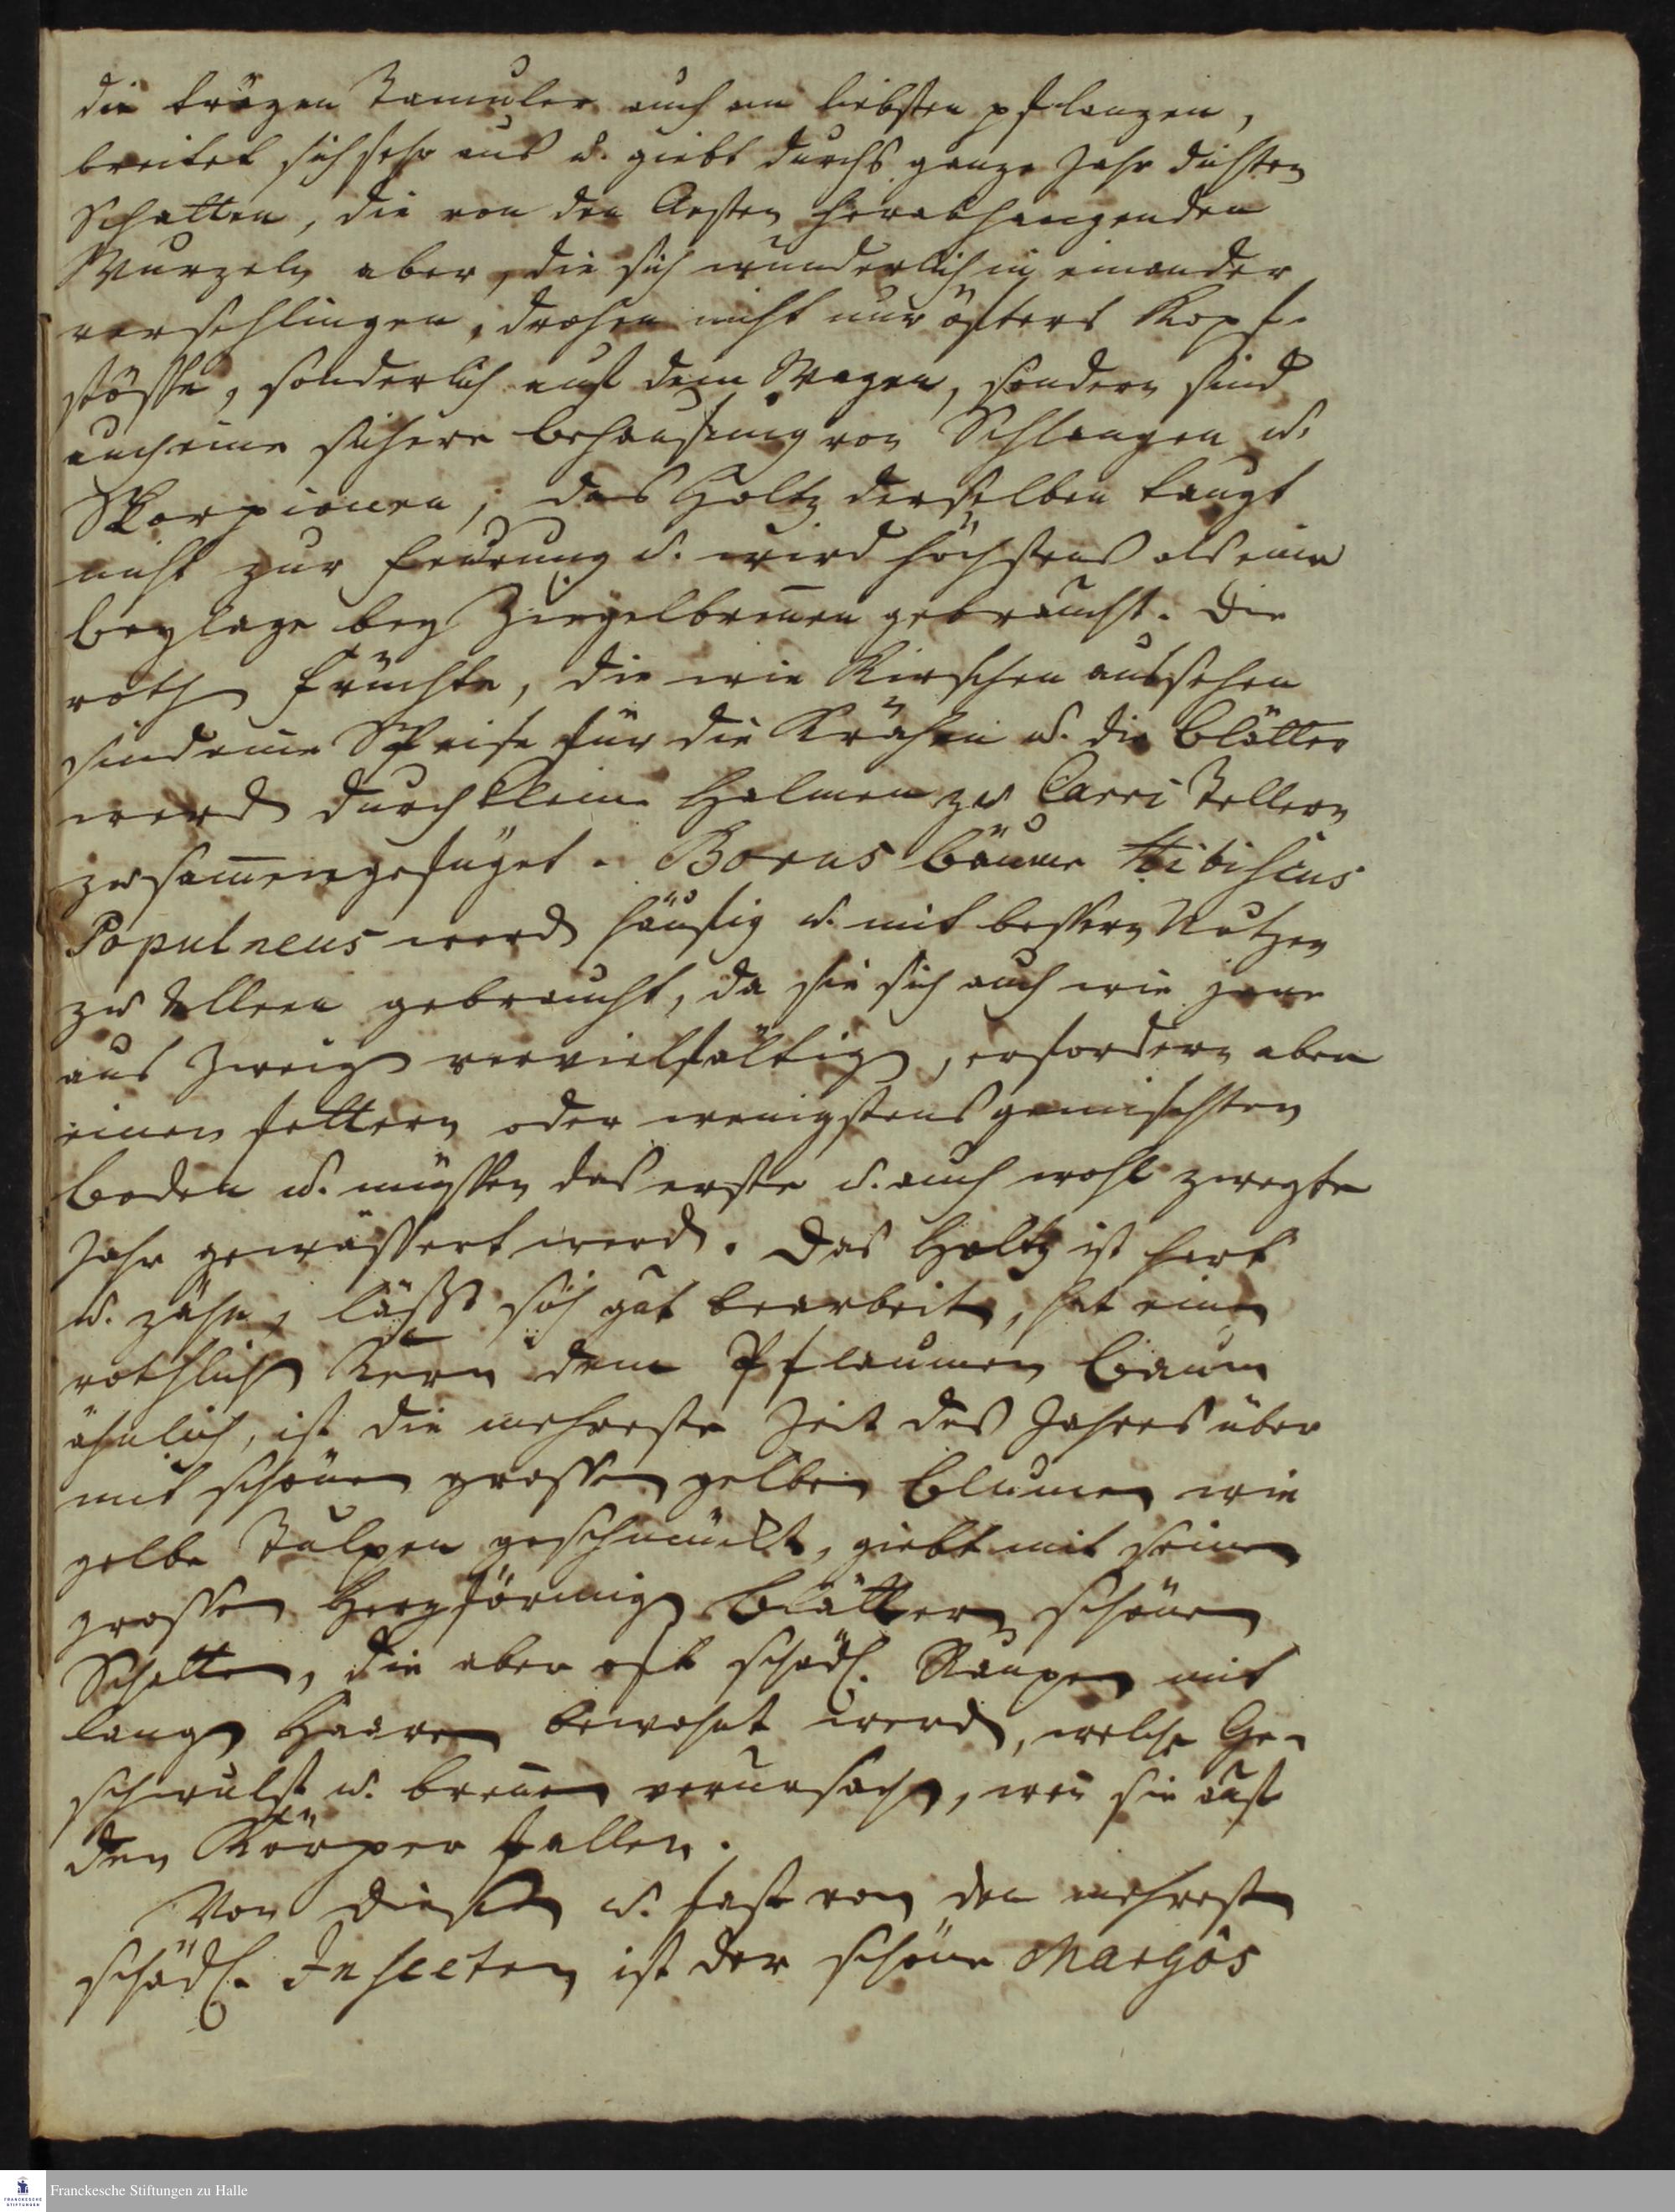 die trägen Tamuler auch am liebsten pflanzen,
breitet sich sehr aus u. giebt durchs ganze Jahr dichten
Schatten, die von den Aesten herabhangenden
Wurzeln aber, die sich wunderlich in einander
verschlingen, drohen nicht nur öfters Kopf-
stösse, sonderlich auf dem Wagen, sondern sind
auch eine sichere Behausung von Schlangen u.
Skorpionen; das Holtz derselben taugt
nicht zur Feurung u. wird höchstens als eine
Beylage bey Ziegelbreñen gebraucht. Die
roth Früchte, die wie Kirschen aussehen
sind eine Speise für die Krähen u. die Blätter
werd durch kleine Halmen zu Carri Tellern
zusam̃engefüget. Borus Bäume Hibiscus
Populneus werd häufig u. mit bessern Nutzen
zu Alleen gebraucht, da sie sich auch wie jene
aus Zweig vervielfältig, erfordern aber
einen fettern oder wenigstens gemischten
Boden u. müssen das erste u. auch wohl zweyte
Jahr gewässert werd. Das Holtz ist hart
u. zähe, lässt sich gut bearbeit, hat einen
rothlich Kern dem Pflaumen Baum
ähnlich, ist die mehreste Zeit des Jahres über
mit schönen grossen gelben Blumen wie
gelbe Tulpen geschmückt, giebt mit seinen
grossen Herzförmig Blättern schönen
Schatten, die aber oft schädl. Raupen mit
lang Haaren bewohnt werd, welche Ge-
schwulst u. breñen verursach, weñ sie auf
den Körper fallen.
Von diesen u. fast von den mehrest
schädl. Insecten ist der schöne Margôs
Franckesche Stiftungen zu Halle
FRANCKESCHE
STIFTUNGEN